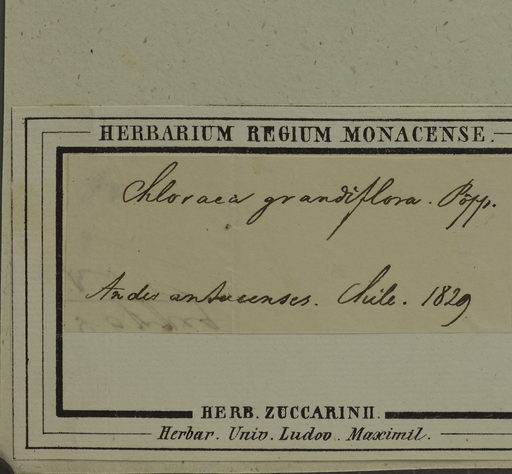 HERBARIUM REGIUM MONACENSE.
Chloraea grandiflora. Pöpp.
Andes antucenses. Chile. 1829
HERB. ZUCCARINII.
Herbar. Univ. Ludov. Maximil.